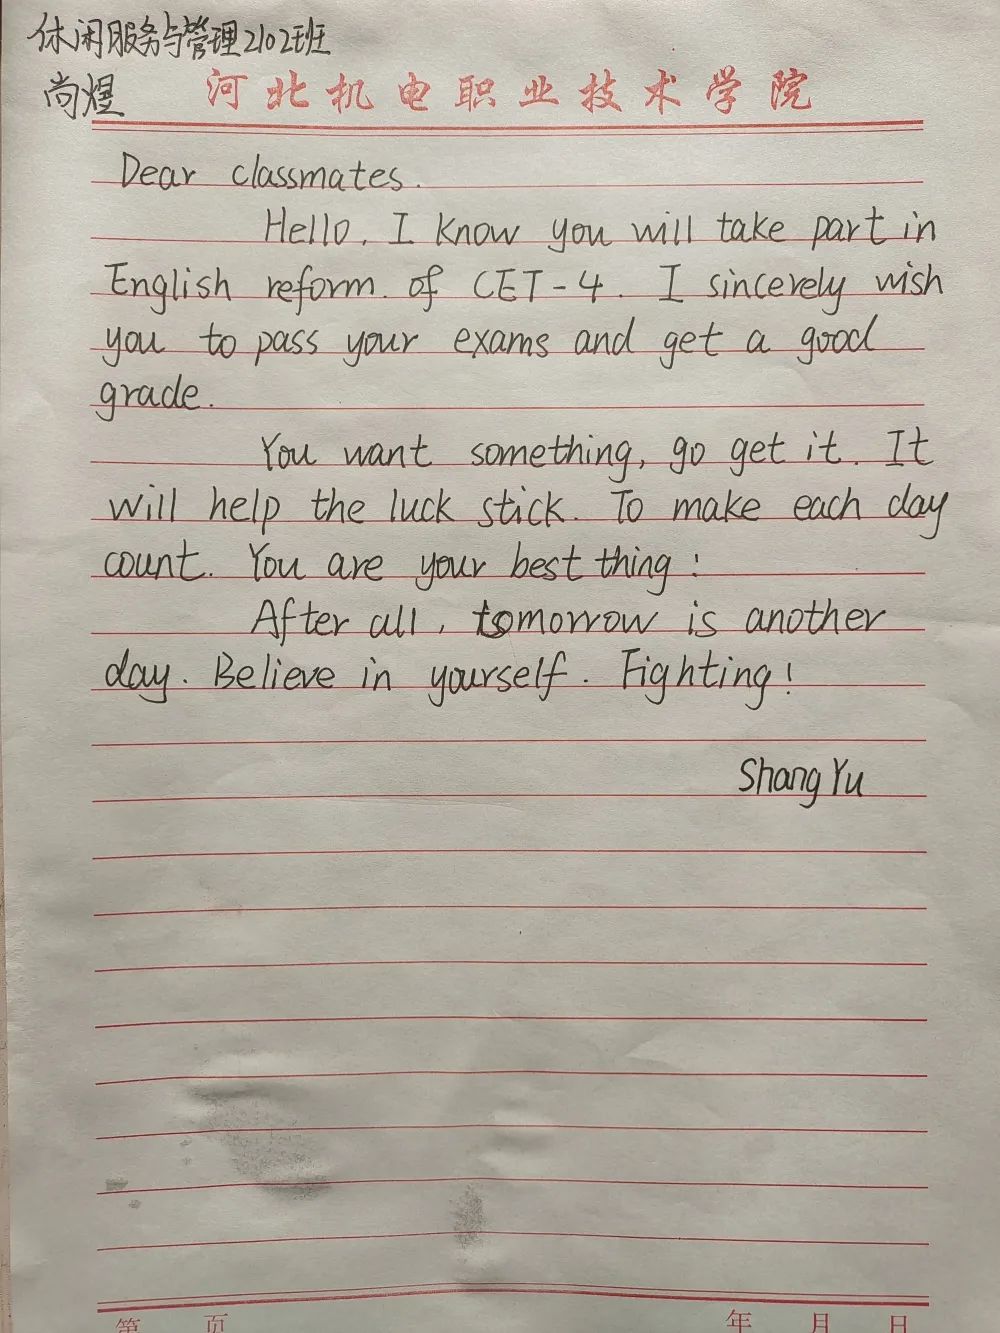 休闲服务与管理2102班
尚煜
河北机电职业技术学院
Dear classmates.
Hello. I know you will take part in
English reform. of CET-4. I sincerely wish
you to pass your exams and get a good
grade.
You want something, go get it. It
will help the luck stick. To make each day
count. You are your best thing!
After all, tomorrow is another
day. Believe in yourself. Fighting!
Shang Yu
第 页 年 月 日